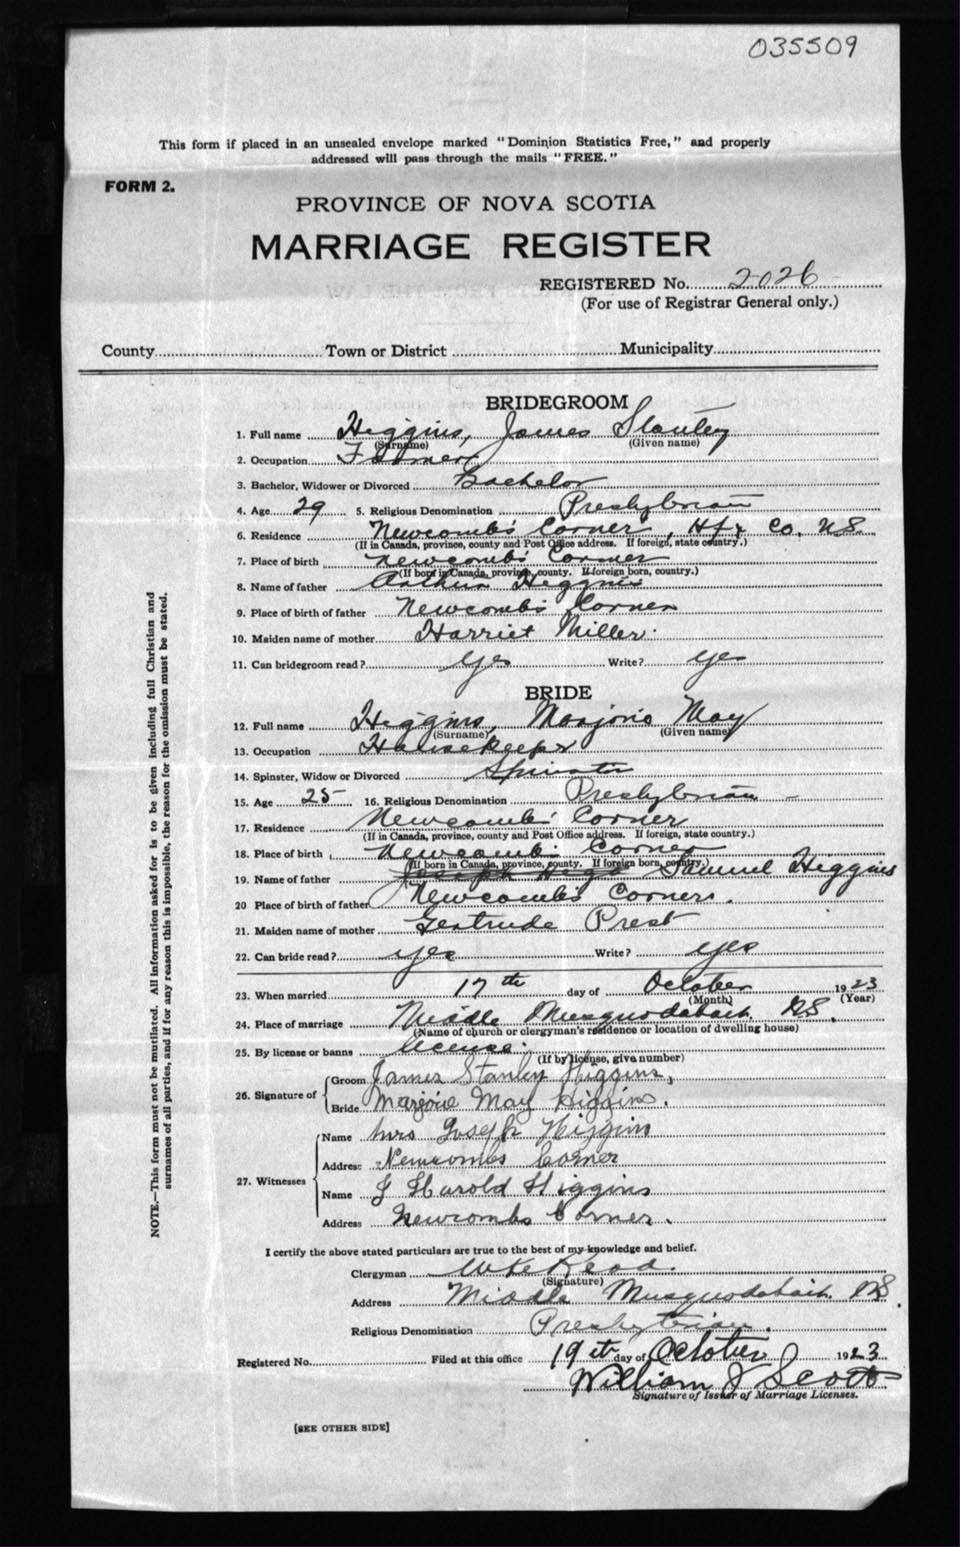 035509
This form if placed in an unsealed envelope marked "Dominion Statistics Free," and properly
addressed will pass through the mails "FREE."
FORM 2.
PROVINCE OF NOVA SCOTIA
MARRIAGE REGISTER
REGISTERED No. 2026
(For use of Registrar General only.)
County Town or District Municipality
BRIDEGROOM
1. Full name Higgins, James Stanley
(Surname) (Given name)
2. Occupation Farmer
3. Bachelor, Widower or Divorced Bachelor
4. Age 29 5. Religious Denomination Presbyterian
6. Residence Newcomb's Corner, Hfx Co. N.S.
(If in Canada, province, county and Post Office address. If foreign, state country.)
7. Place of birth Newcomb's Corner
(If born in Canada, province, county. If foreign born, country.)
8. Name of father Arthur Higgins
9. Place of birth of father Newcomb's Corner
10. Maiden name of mother Harriet Miller.
11. Can bridegroom read? Yes Write? Yes
BRIDE
12. Full name Higgins, Marjorie May
(Surname) (Given name)
13. Occupation Housekeeper
14. Spinster, Widow or Divorced Spinster
15. Age 25 16. Religious Denomination Presbyterian
17. Residence Newcomb's Corner
(If in Canada, province, county and Post Office address. If foreign, state country.)
18. Place of birth Newcomb's Corner
(If born in Canada, province, county. If foreign born, country.)
19. Name of father Joseph Samuel Higgins
20 Place of birth of father Newcomb's Corner.
21. Maiden name of mother Gertrude Prest
22. Can bride read? Yes Write? Yes
23. When married 17th day of October 1923
(Month) (Year)
24. Place of marriage Middle Musquodoboit N.S.
(Name of church or clergyman's residence or location of dwelling house)
25. By license or banns License.
(If by license, give number)
26. Signature of Groom James Stanley Higgins,
Bride Marjorie May Higgins.
27. Witnesses Name Mrs Joseph Higgins
Address Newcombs Corner
Name J Harold Higgins
Address Newcombs Corner.
I certify the above stated particulars are true to the best of my knowledge and belief.
Clergyman Read.
(Signature)
Address Middle Musquodoboit. N.S.
Religious Denomination Presbyterian.
Registered No. Filed at this office 19th day of October 1923
William J Scott
Signature of Issuer of Marriage Licenses.
[SEE OTHER SIDE]
NOTE.—This form must not be mutilated. All information asked for is to be given including full Christian and
surnames of all parties, and if for any reason this is impossible, the reason for the omission must be stated.